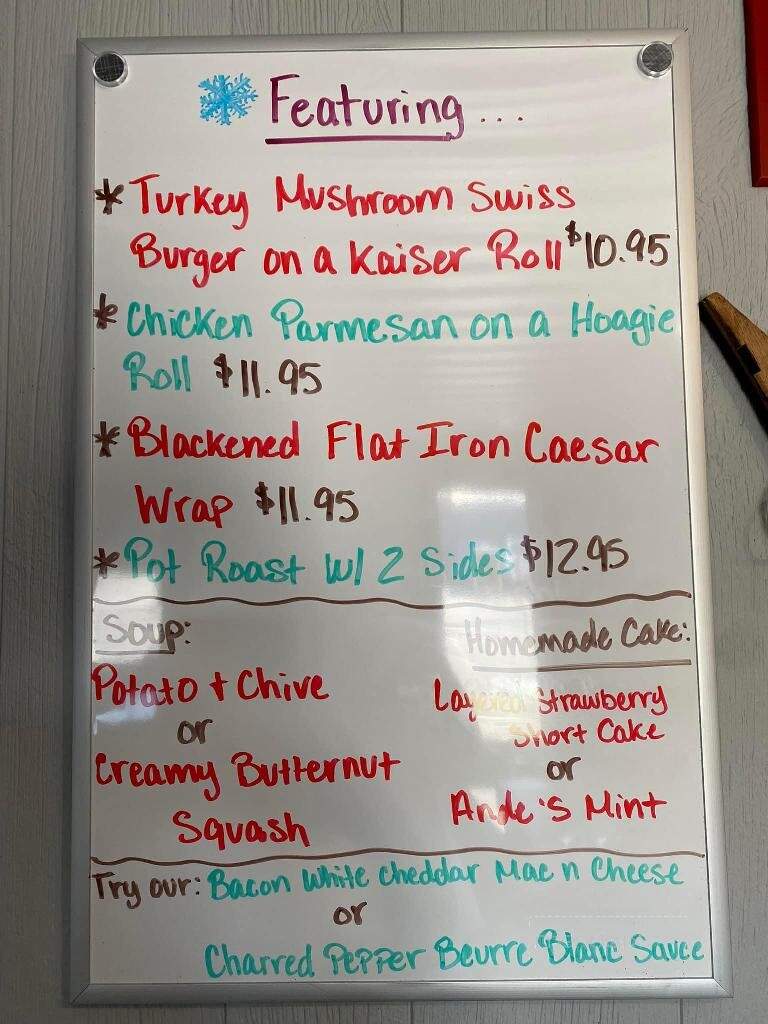 Featuring...
* Turkey Mushroom Swiss
Burger on a Kaiser Roll $10.95
* Chicken Parmesan on a Hoagie
Roll $11.95
* Blackened Flat Iron Caesar
Wrap $11.95
* Pot Roast w/ 2 Sides $12.95
Soup:
Potato + Chive
or
Creamy Butternut
Squash
Homemade Cake:
Layered Strawberry
Short Cake
or
Ande's Mint
Try our: Bacon White Cheddar Mac n Cheese
or
Charred Pepper Beurre Blanc Sauce